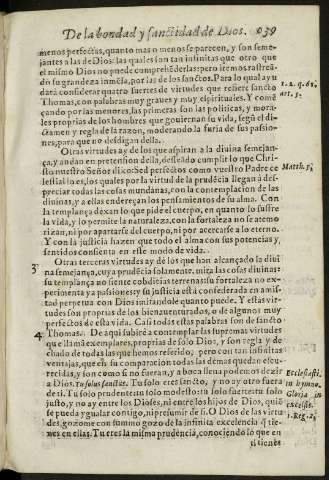 De la bondad y sanctidad de Dios. 239
menos perfectas, quanto mas o menos se parecen, y son seme-
jantes a las de Dios: las quales son tan infinitas que otro que
el mismo Dios no puede comprehēderlas: pero iremos rastreā-
do su grandeza inmēsa, por las de los sanctos. Para lo qual ayu
dará considerar quatro suertes de virtudes que refiere sancto
1. 2. q. 61.
art. 5.
Thomas, con palabras muy graves y muy espirituales. Y comē
çando por las menores, las primeras son las politicas, y mora-
les proprias de los hombres que goviernan su vida, segū el di-
ctamen y regla de la razon, moderando la furia de sus passio-
nes, para que no desdigan della.
Otras virtudes ay de los que aspiran a la divina semejan-
ça, y andan en pretension della, desseādo cumplir lo que Chri-
sto nuestro Señor dixo: Sed perfectos como vuestro Padre ce
Matth. 5.
lestial lo es, los quales por la virtud de la prudēcia llegan á des-
preciar todas las cosas mundanas, con la contemplacion de las
divinas, y a ellas enderēçan los pensamientos de su alma. Con
la templança dexan lo que pide el cuerpo, en quanto lo suffre
la vida, y lo permite la naturaleza, con la fortaleza no se atemo
rizan, ni por apartarse del cuerpo, ni por acercarse a lo eterno.
Y con la justicia hazen que todo el alma con sus potencias y,
sentidos consienta en este modo de vida.
3
Otras terceras virtudes ay de los que han alcançado la divi
na semejança, cuya prudēcia solamente mira las cosas divinas:
su templança no siente cobdicias terrenas: su fortaleza no ex-
perimenta ya passiones: y su justicia está confederada en amis-
tad perpetua con Dios imitandole quanto puede. Y estas vir-
tudes son proprias de los bienaventurados, o de algunos muy
perfectos de esta vida. Casi todas estas palabras son de sancto
4
Thomas. De aqui subiré a contemplar las supremas virtudes
que llamā exemplares, proprias de solo Dios, y son regla y de-
chado de todas las que hemos referido; pero con tan infinitas
ventajas, que en su comparacion todas las demas quedan escu-
recidas, y son como si no fueran, y a boca llena podemos dezir
Ecclesiasti.
a Dios. Tu solus sanctus. Tu solo eres sancto, y no ay otro fuera
in hymno.
de ti. Tu solo prudente: tu solo modesto: tu solo fuerte: tu solo
Gloria in
justo, y no ay entre los Dioses, ni entre los hijos de Dios, quiē
excelsis.
se pueda ygualar contigo, ni presumir de si. O Dios de las virtu
1. Reg. 2.
des, gozome con summo gozo de la infinita excelencia q̄ tie-
nes en ellas. Tu eres la misma prudencia, conociendo lo que en
ti tienes